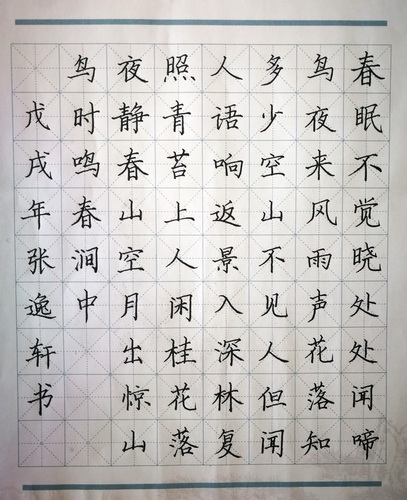 春眠不觉晓处处闻啼
鸟夜来风雨声花落知
多少空山不见人但闻
人语响返景入深林复
照青苔上人闲桂花落
夜静春山空月出惊山
鸟时鸣春涧中
戊戌年张逸轩书